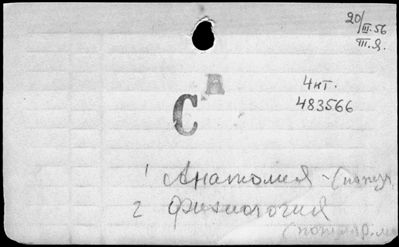 20/III.56
III.Я.
А
4кт.
483566
С
1 Анатомия - (популя
2 Физиология
(популяр.